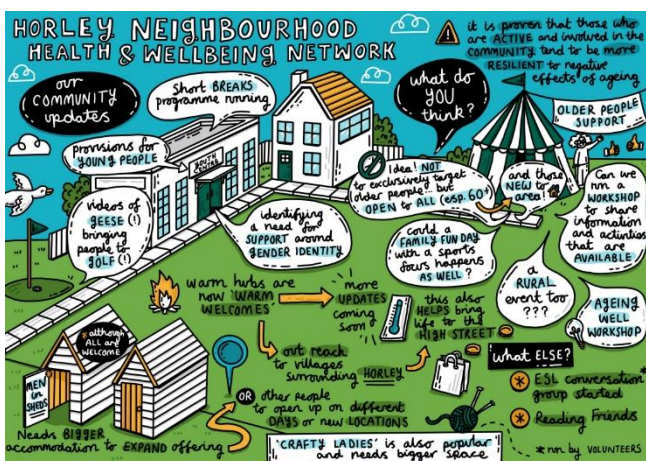 HORLEY NEIGHBOURHOOD
HEALTH & WELLBEING NETWORK
⚠ it is proven that those who
are ACTIVE and involved in the
COMMUNITY tend to be more
RESILIENT to negative
effects of ageing
our
COMMUNITY
updates
Short BREAKS
programme running
provisions for
YOUNG PEOPLE
videos of
GEESE (!)
bringing
people to
GOLF (!)
YOUTH
CENTRE
identifying
a need for
SUPPORT around
GENDER IDENTITY
what do
YOU
think?
OLDER PEOPLE
SUPPORT
Idea! NOT
to exclusively target
older people, but
OPEN to ALL (esp. 60+)
and those
NEW to
area!
Can we
run a
WORKSHOP
to share
information
and activities
that are
AVAILABLE
could a
FAMILY FUN DAY
with a sports
focus happen
AS WELL?
a
RURAL
event too
???
AGEING
WELL
WORKSHOP
warm hubs are
now 'WARM
WELCOMES'
more
UPDATES
coming
soon
this also
HELPS bring
life to the
HIGH STREET
out reach
to villages
surrounding HORLEY
OR other people
to open up on different
DAYS or new LOCATIONS
*although
ALL are
WELCOME
MEN
in
SHEDS
Needs BIGGER
accommodation to EXPAND offering
'CRAFTY LADIES' is also popular
and needs bigger space
what ELSE?
* ESL conversation
group started
* Reading Friends
* run by VOLUNTEERS